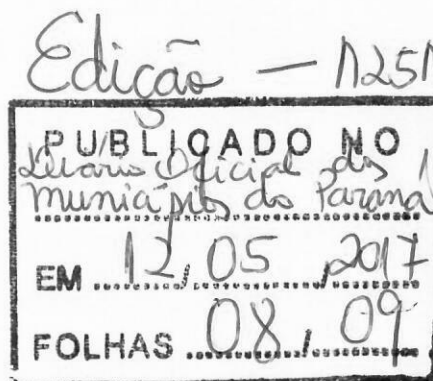 Edição — 1251
PUBLICADO NO
Diário Oficial dos
Municípios do Paraná
EM 12, 05, 2017
FOLHAS 08, 09